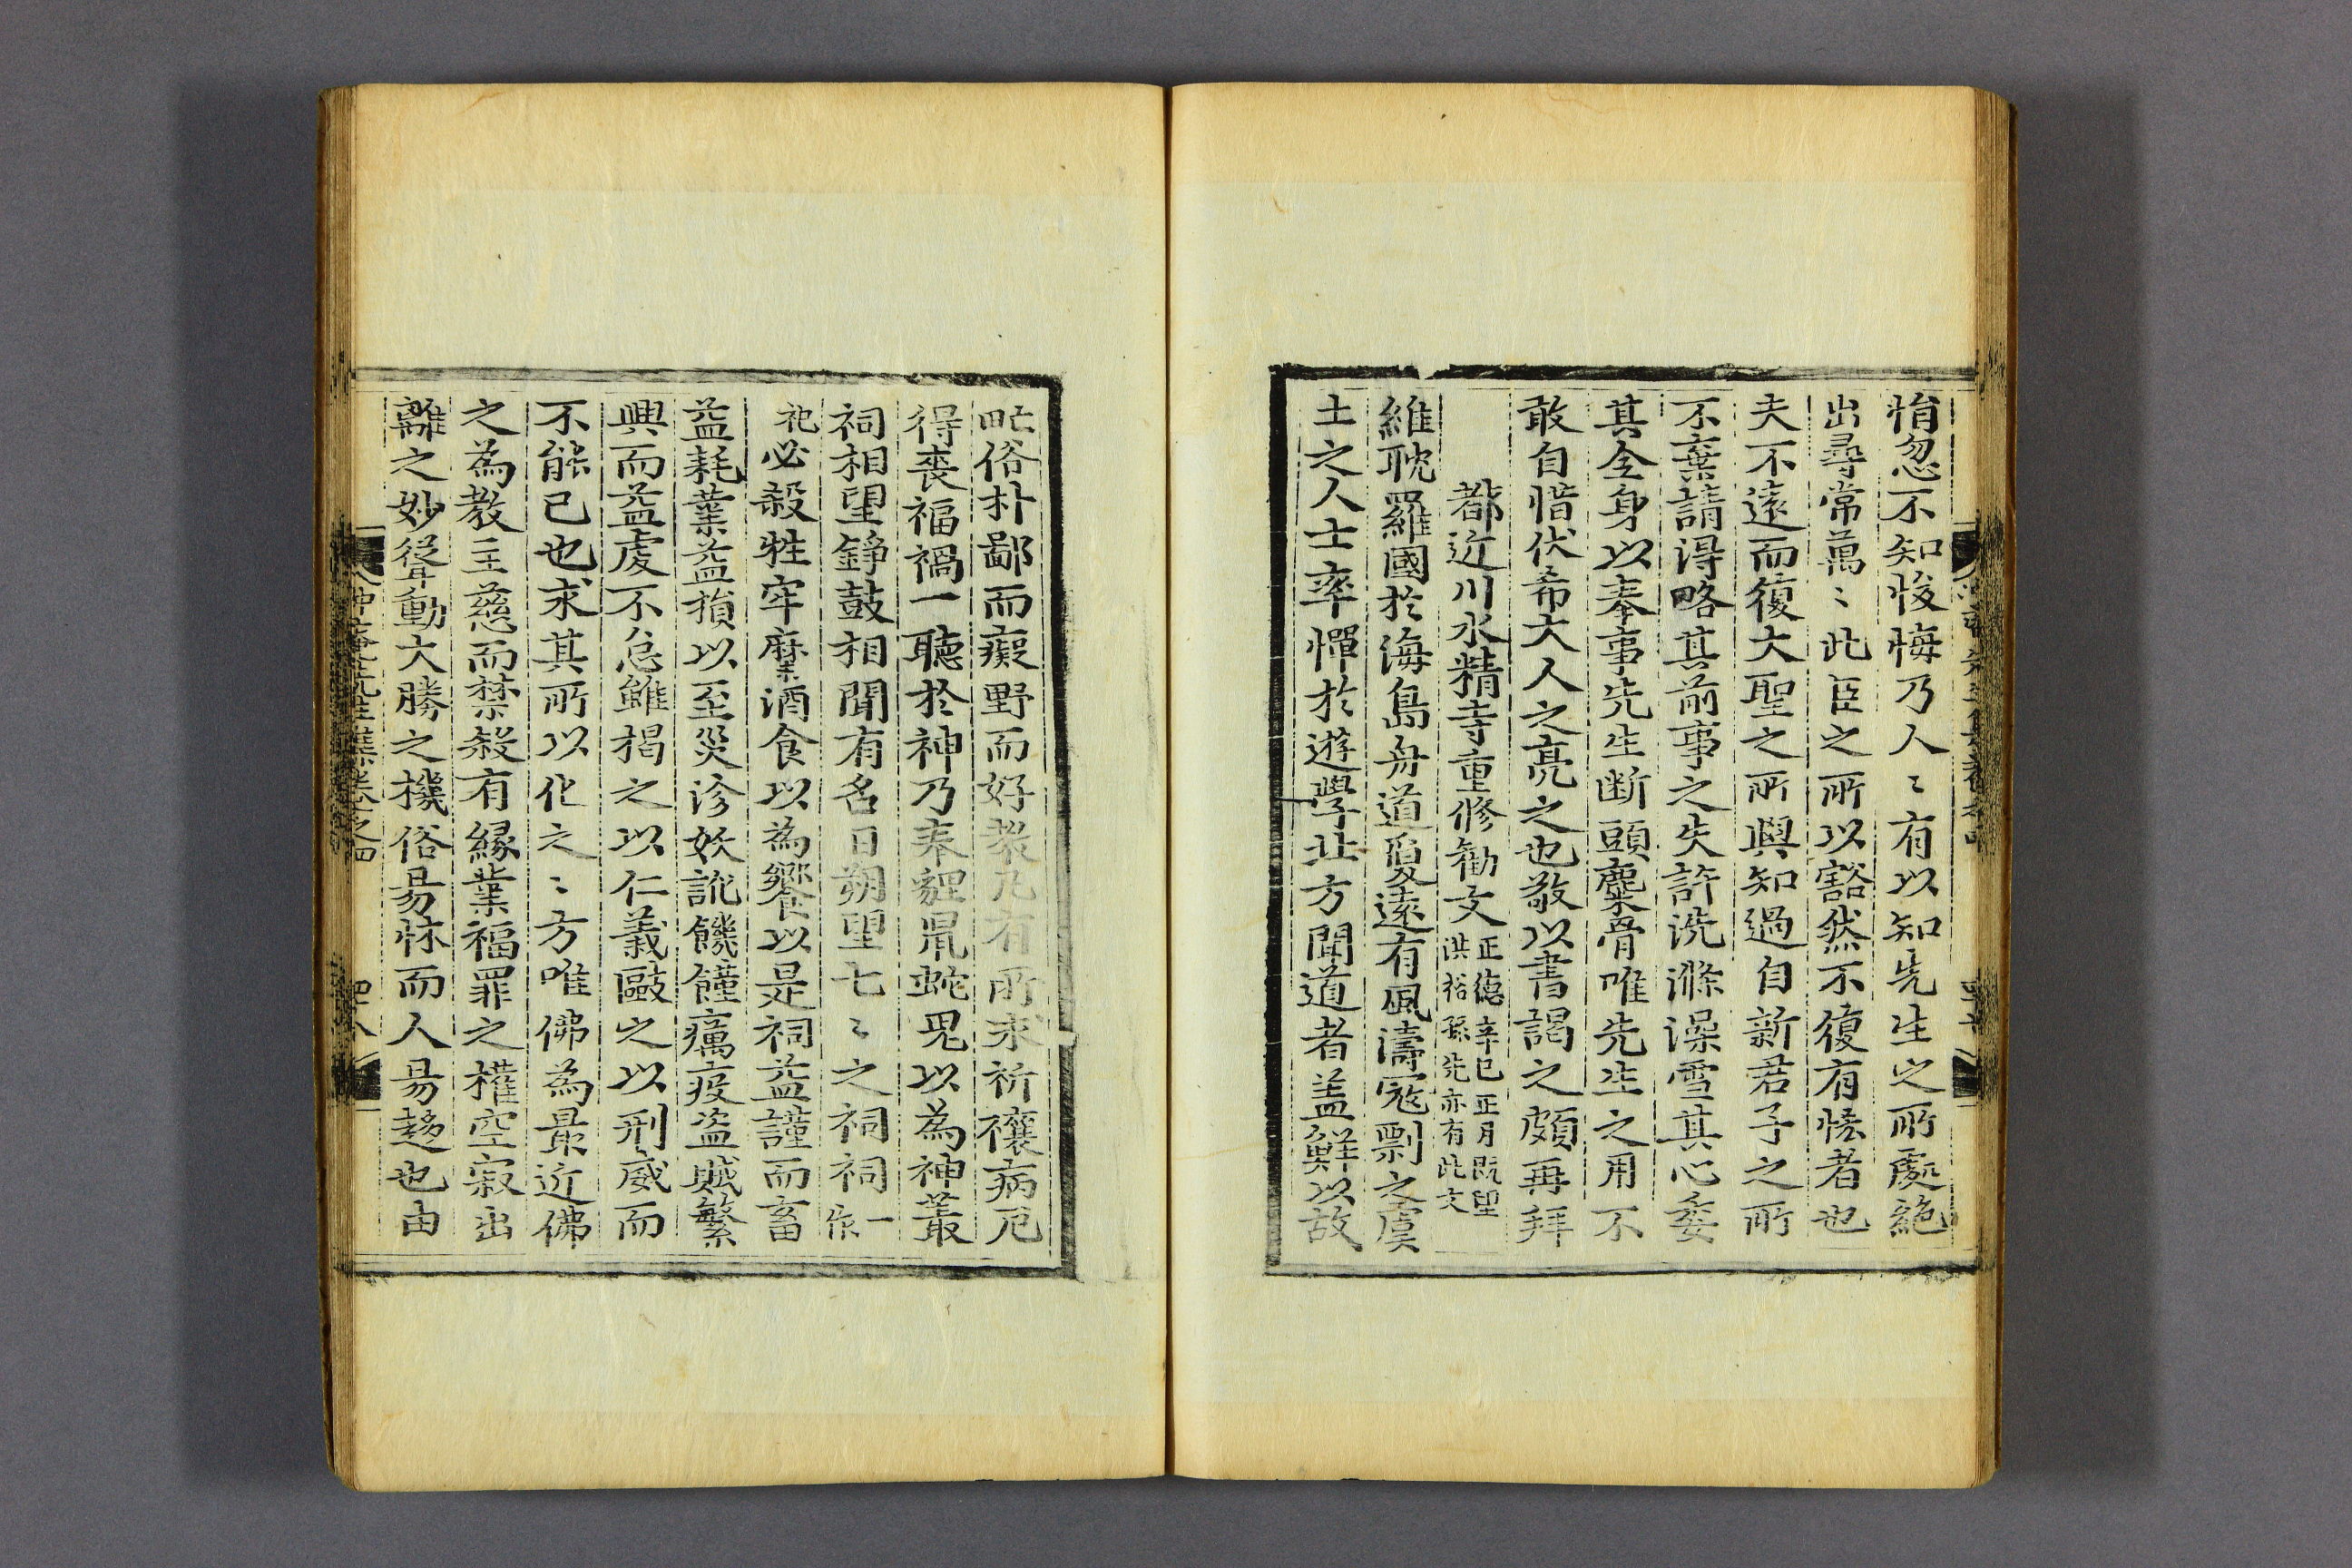 悄忽不知悛悔乃人〻有以知先生之所處絶
出尋常萬〻此臣之所以豁然不復有恠者也
夫不遠而復大聖之所與知過自新君子之所
不棄請得略其前事之失許洗滌澡雪其心委
其全身以奉事先生断頭麋骨唯先生之用不
敢自惜伏希大人之亮之也敬以書謁之頗再拜
都近川水精寺重修勸文
正德辛巳正月既望
洪裕孫先亦有此文
維耽羅國於海島舟道敻遠有風濤寇剽之虞
土之人士率憚於遊學北方聞道者盖鮮以故
甿俗朴鄙而癡野而好 凡有所求祈禳病厄
得喪福禍一聽於神乃奉貍鼠蛇鬼以為神叢
祠相望錚鼓相聞有名日朔望七〻之祠祠一作
祀必殺牲牢糜酒食以為饗以是祠益謹而畜
益耗業益損以至災沴妖訛饑饉癘疫盗賊繁
興而益虔不怠雖揭之以仁義敺之以刑威而
不能已也求其所以化之〻方唯佛為最近佛
之為教主慈而禁殺有緣業福罪之權空寂出
離之妙聳動大勝之機俗易怵而人易趍也由
冲菴先生集卷之四
四十八